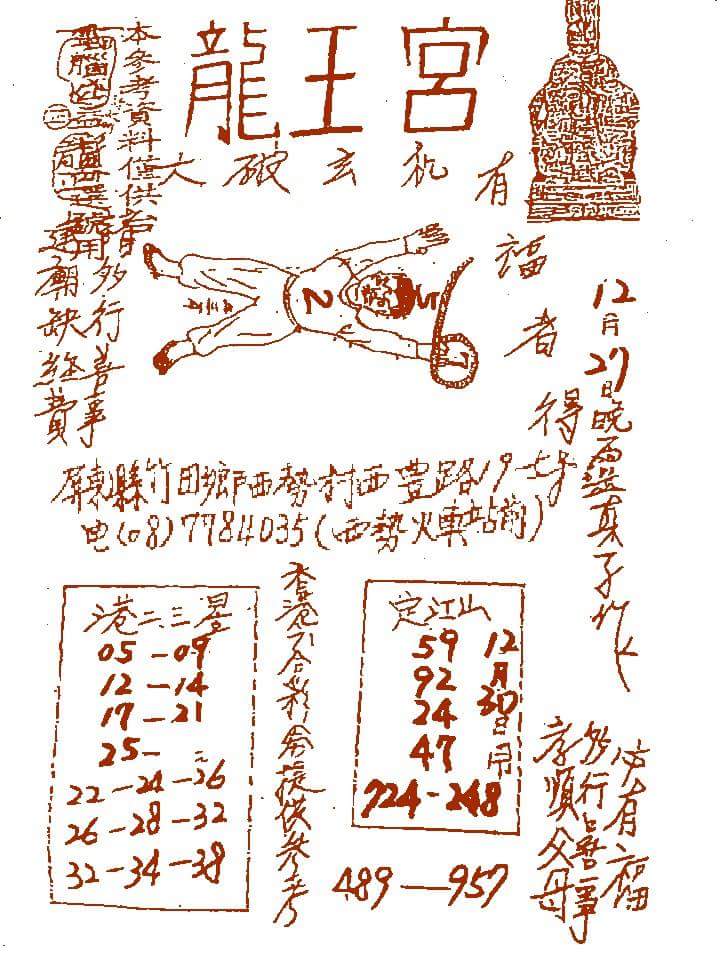 龍王宮
大破玄机
有福者得
本參考資料僅供
建廟缺經費
多行善事
2
12月27日晚
屏東縣竹田鄉西勢村西豐路19-七号
电(08)7784035(西勢火車站前)
港二三星
05-09
12-14
17-21
25-
22-24-26
26-28-32
32-34-38
香港六合彩
提供参考
定江山
59
92
24
47
724-248
12月30日用
489—957
有福
多行善事
孝順父母